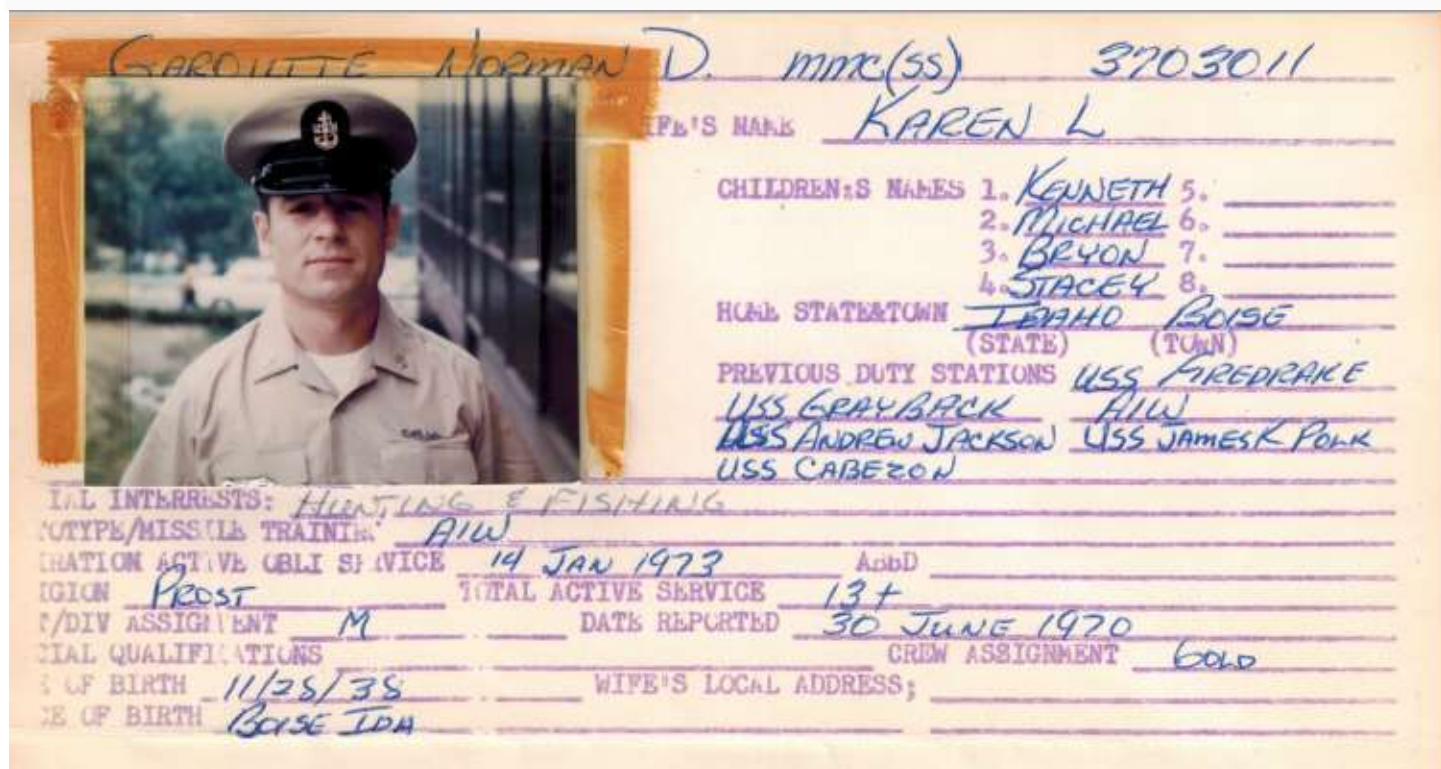 GAROUTTE NORMAN D. MMC(SS) 3703011
IFE'S NAME KAREN L
CHILDREN:S NAMES 1. KENNETH 5.
2. MICHAEL 6.
3. BRYON 7.
4. STACEY 8.
HOME STATE&TOWN IDAHO BOISE
(STATE) (TOWN)
PREVIOUS DUTY STATIONS USS GREDRAKE
USS GRAYBACK AIW
USS ANDREW JACKSON USS JAMES K POLK
USS CABEZON
IAL INTERRESTS: HUNTING & FISHING
OTYPE/MISSILE TRAINING AIW
IRATION ACTIVE OBLI SERVICE 14 JAN 1973 ADBD
IGION PROST TOTAL ACTIVE SERVICE 13+
T/DIV ASSIGNMENT M DATE REPORTED 30 JUNE 1970
CIAL QUALIFICATIONS CREW ASSIGNMENT GOLD
E OF BIRTH 11/25/38 WIFE'S LOCAL ADDRESS;
CE OF BIRTH BOISE IDA